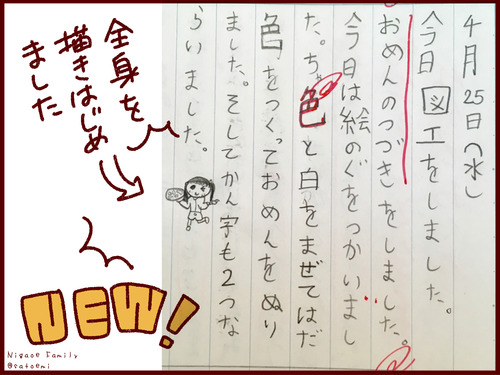 4月25日(水)
今日図工をしました。
おめんのつづきをしました。
今日は絵のぐをつかいまし
た。ちゃ色と白をまぜてはだ
色をつくっておめんをぬり
ました。そしてかん字も2つな
らいました。
全身を
描きはじめ
ました
NEW!
Nigaoe Family
@satoemi